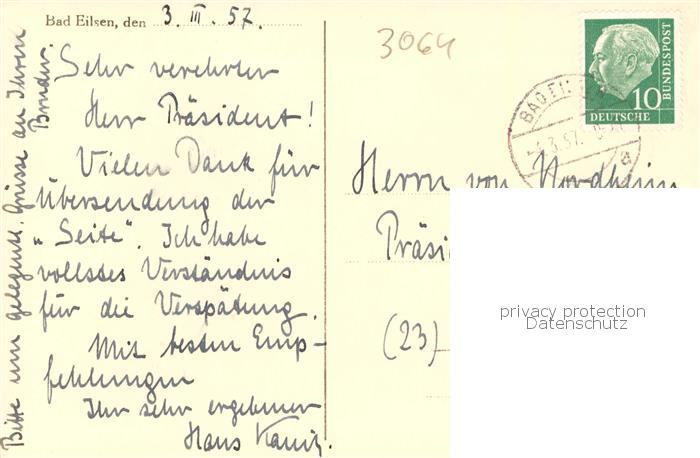 Bad Eilsen, den 3. III. 57.
Sehr verehrter
Herr Präsident!
Vielen Dank für
Übersendung der
„Seite". Ich habe
vollstes Verständnis
für die Verspätung.
Mit besten Emp-
fehlungen
Ihr sehr ergebener
Hans
Bitte um gelegentl. Grüsse an Ihren
Bruder
3064
10
DEUTSCHE
BUNDESPOST
BAD EI
4.3.57
a
Herrn von Nordheim
Präsi
(23)
privacy protection
Datenschutz